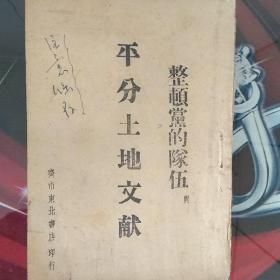 整頓黨的隊伍與
平分土地文献
東北書店印行